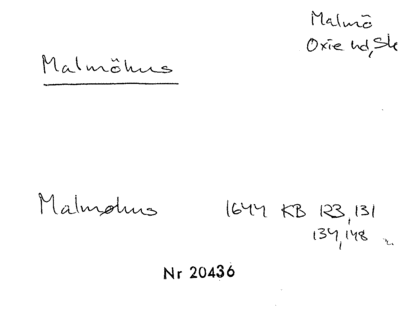 Malmö
Oxie hd, Sk
Malmöhus
Malmøhus 1644 KB 123, 131
134, 148
Nr 20436